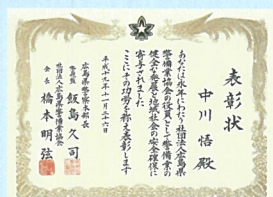 表彰状
中川 悟 殿
あなたは永年にわたり社団法人広島県
警備業協会の役員として警備業の
健全な発展と地域社会の安全確保に
寄与されました
ここにその功労を称え表彰します
平成十九年十一月二十六日
広島県警察本部長
警視監 飯島久司
社団法人広島県警備業協会
会長 橋本明弦